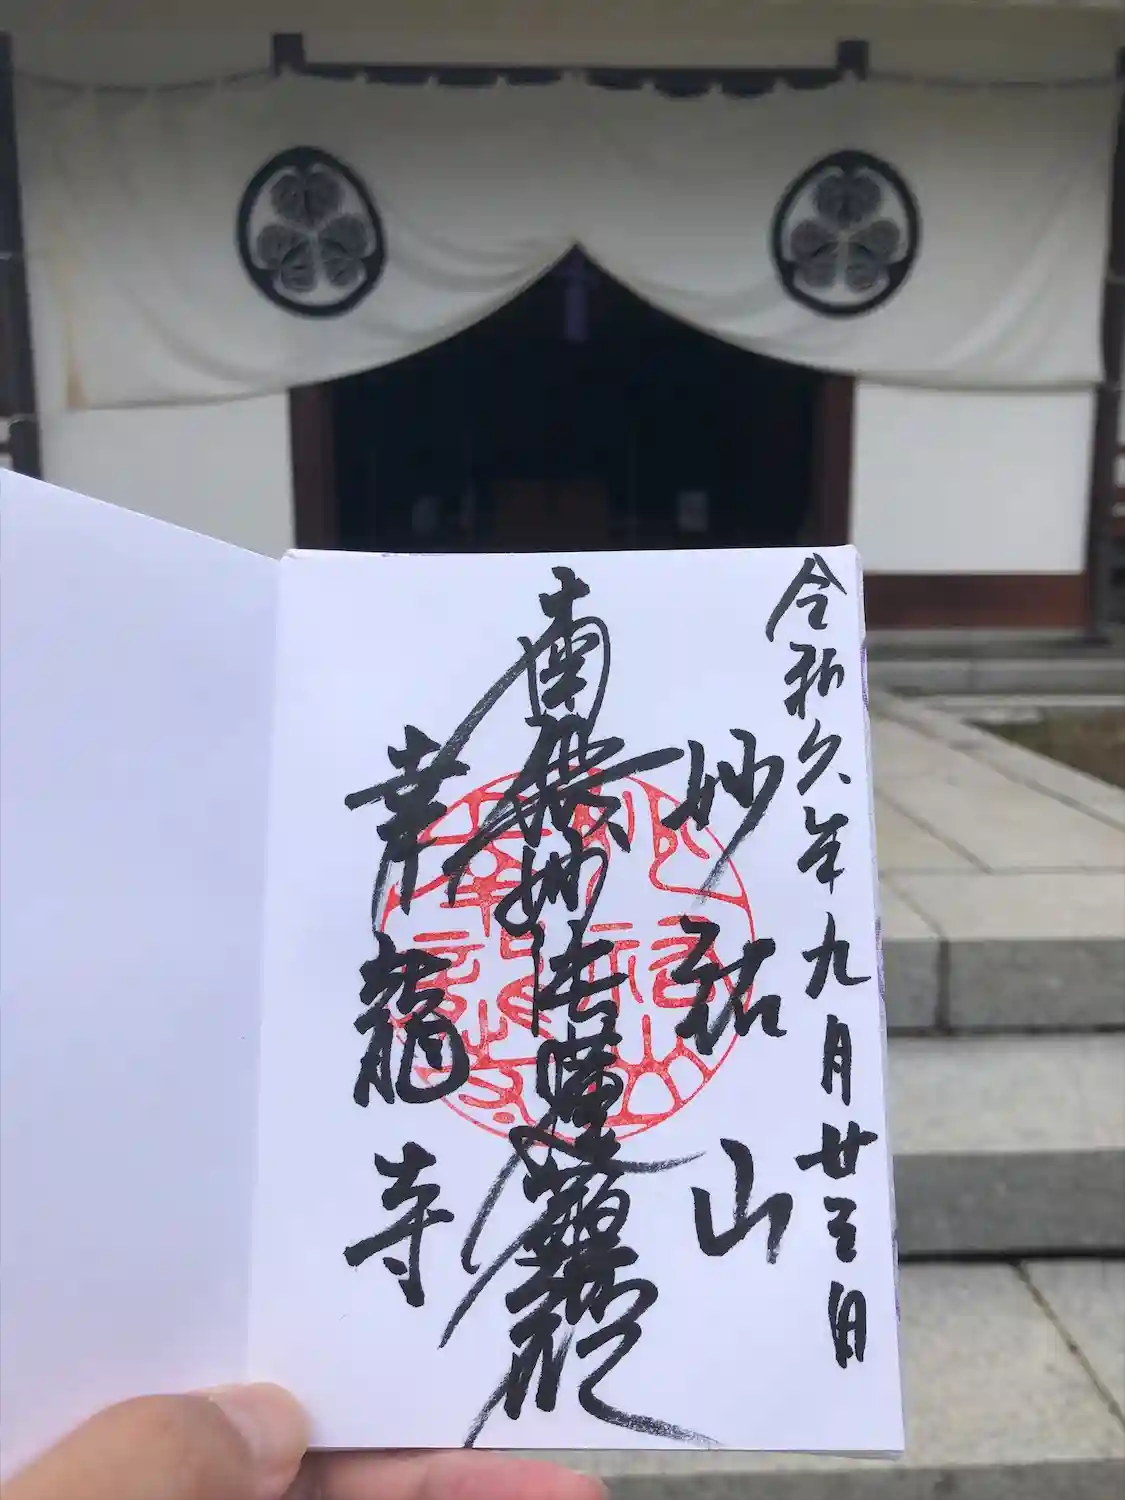 令和久年九月廿三日
妙祐山
南無妙法蓮華経
幸龍寺